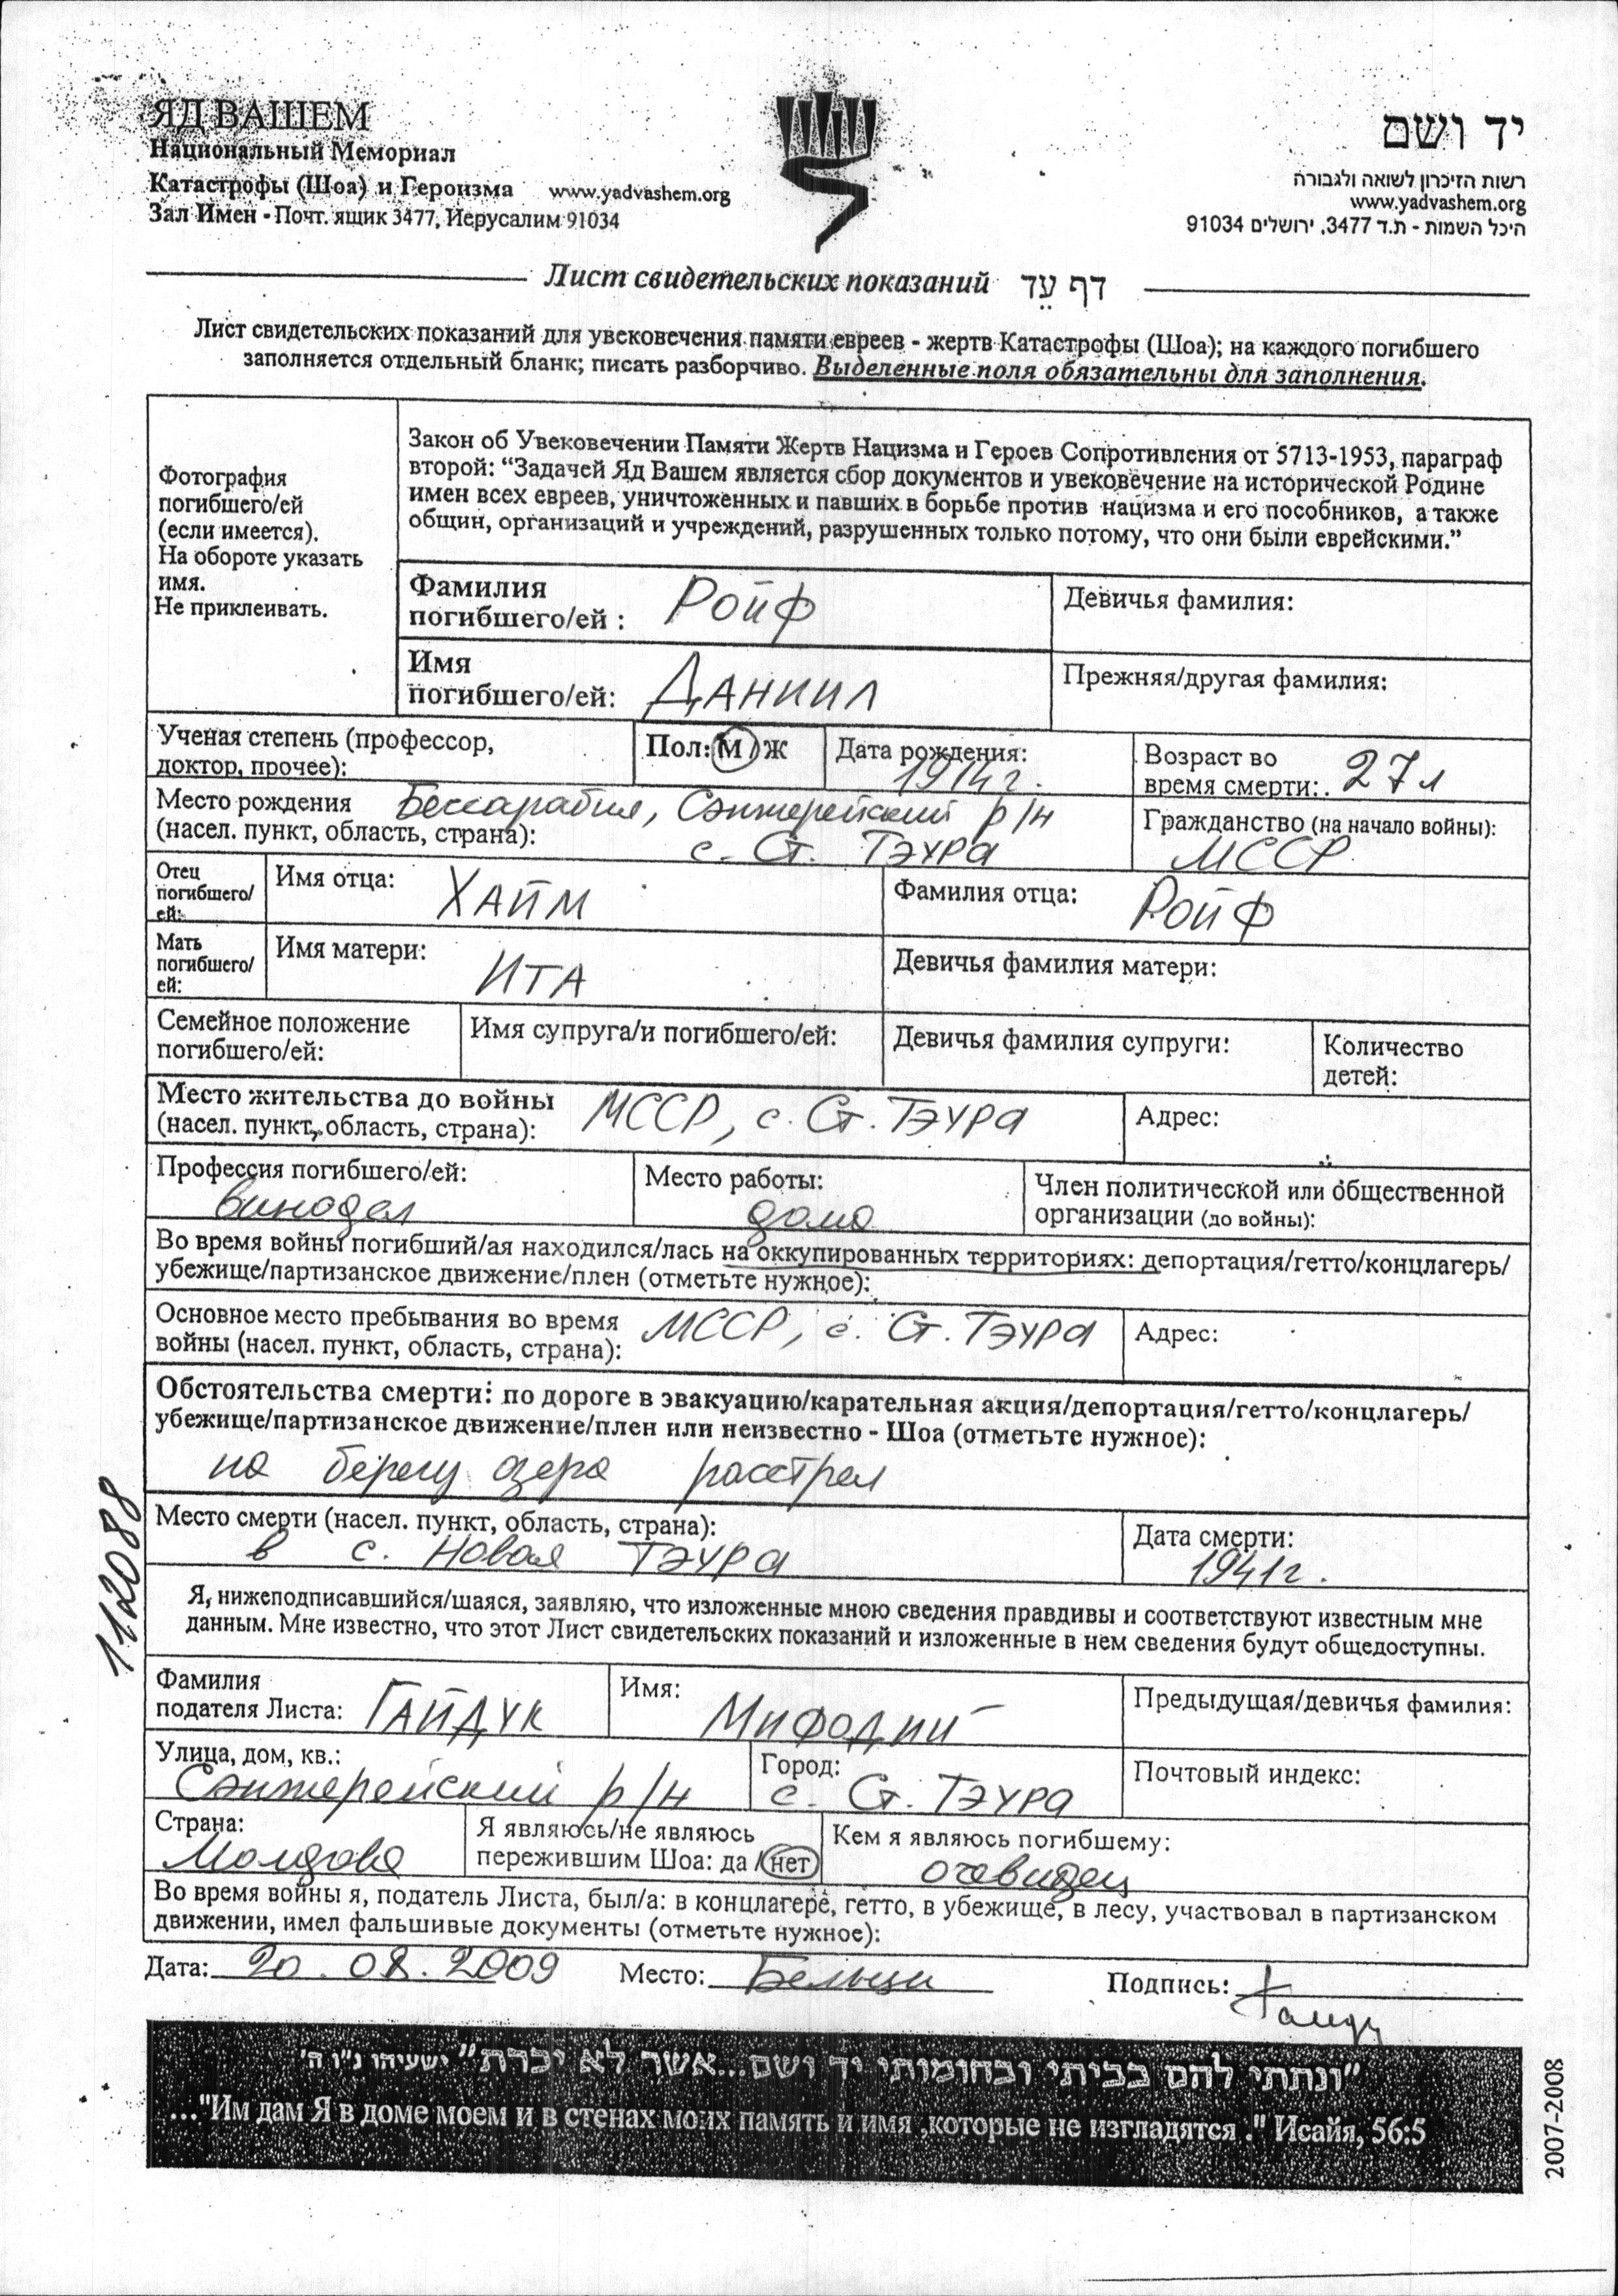 ЯД ВАШЕМ
Национальный Мемориал
Катастрофы (Шоа) и Героизма www.yadvashem.org
Зал Имен - Почт. ящик 3477, Иерусалим 91034
יד ושם
רשות הזיכרון לשואה ולגבורה
www.yadvashem.org
היכל השמות - ת.ד 3477, ירושלים 91034
Лист свидетельских показаний דף עֵד
Лист свидетельских показаний для увековечения памяти евреев - жертв Катастрофы (Шоа); на каждого погибшего
заполняется отдельный бланк; писать разборчиво. Выделенные поля обязательны для заполнения.
Фотография
погибшего/ей
(если имеется).
На обороте указать
имя.
Не приклеивать.
Закон об Увековечении Памяти Жертв Нацизма и Героев Сопротивления от 5713-1953, параграф
второй: “Задачей Яд Вашем является сбор документов и увековечение на исторической Родине
имен всех евреев, уничтоженных и павших в борьбе против нацизма и его пособников, а также
общин, организаций и учреждений, разрушенных только потому, что они были еврейскими.”
Фамилия
погибшего/ей : Ройф
Девичья фамилия:
Имя
погибшего/ей: Даниил
Прежняя/другая фамилия:
Ученая степень (профессор,
доктор, прочее):
Пол: М/Ж
Дата рождения:
1914г.
Возраст во
время смерти: 27 л
Место рождения Бессарабия, Сэнжерейский р/н
(насел. пункт, область, страна): с. Ст. Тэура
Гражданство (на начало войны):
МССР
Отец
погибшего/
ей:
Имя отца: Хайм
Фамилия отца: Ройф
Мать
погибшего/
ей:
Имя матери: Ита
Девичья фамилия матери:
Семейное положение
погибшего/ей:
Имя супруга/и погибшего/ей:
Девичья фамилия супруги:
Количество
детей:
Место жительства до войны
(насел. пункт, область, страна): МССР, с. Ст. Тэура
Адрес:
Профессия погибшего/ей:
винодел
Место работы:
дома
Член политической или общественной
организации (до войны):
Во время войны погибший/ая находился/лась на оккупированных территориях: депортация/гетто/концлагерь/
убежище/партизанское движение/плен (отметьте нужное):
Основное место пребывания во время
войны (насел. пункт, область, страна): МССР, с. Ст. Тэура
Адрес:
Обстоятельства смерти: по дороге в эвакуацию/карательная акция/депортация/гетто/концлагерь/
убежище/партизанское движение/плен или неизвестно - Шоа (отметьте нужное):
на берегу озера расстрел
Место смерти (насел. пункт, область, страна):
в с. Новая Тэура
Дата смерти:
1941г.
112088
Я, нижеподписавшийся/шаяся, заявляю, что изложенные мною сведения правдивы и соответствуют известным мне
данным. Мне известно, что этот Лист свидетельских показаний и изложенные в нем сведения будут общедоступны.
Фамилия
подателя Листа: Гайдук
Имя: Мифодий
Предыдущая/девичья фамилия:
Улица, дом, кв.:
Сэнжерейский р/н
Город:
с. Ст. Тэура
Почтовый индекс:
Страна:
Молдова
Я являюсь/не являюсь
пережившим Шоа: да /нет
Кем я являюсь погибшему:
очевидец
Во время войны я, податель Листа, был/а: в концлагере, гетто, в убежище, в лесу, участвовал в партизанском
движении, имел фальшивые документы (отметьте нужное):
Дата: 20.08.2009 Место: Бельцы Подпись:
"ונתתי להם בביתי ובחומותי יד ושם...אשר לא יכרת" ישעיהו נ"ו ה'
..."Им дам Я в доме моем и в стенах моих память и имя ,которые не изгладятся ." Исайя, 56:5
2007-2008